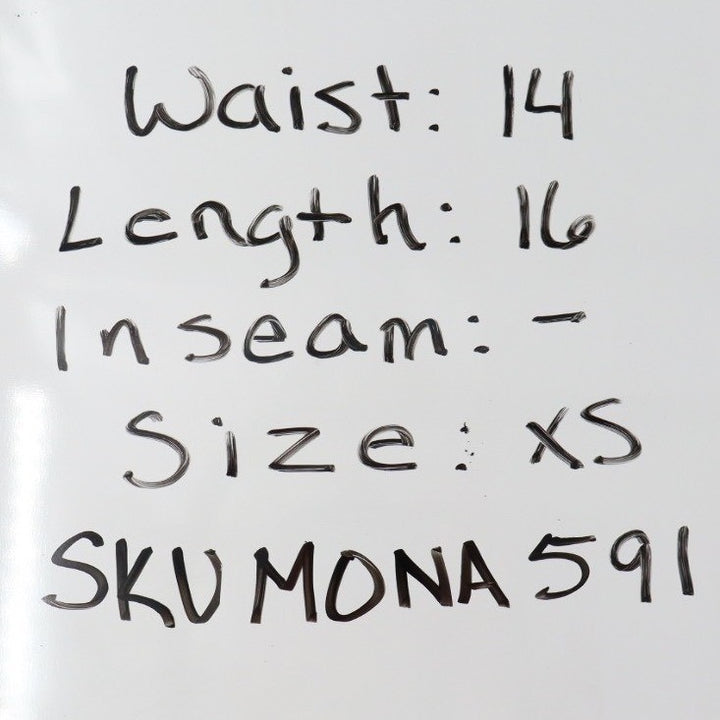 Waist: 14
Length: 16
Inseam: -
Size: XS
SKU MONA 591